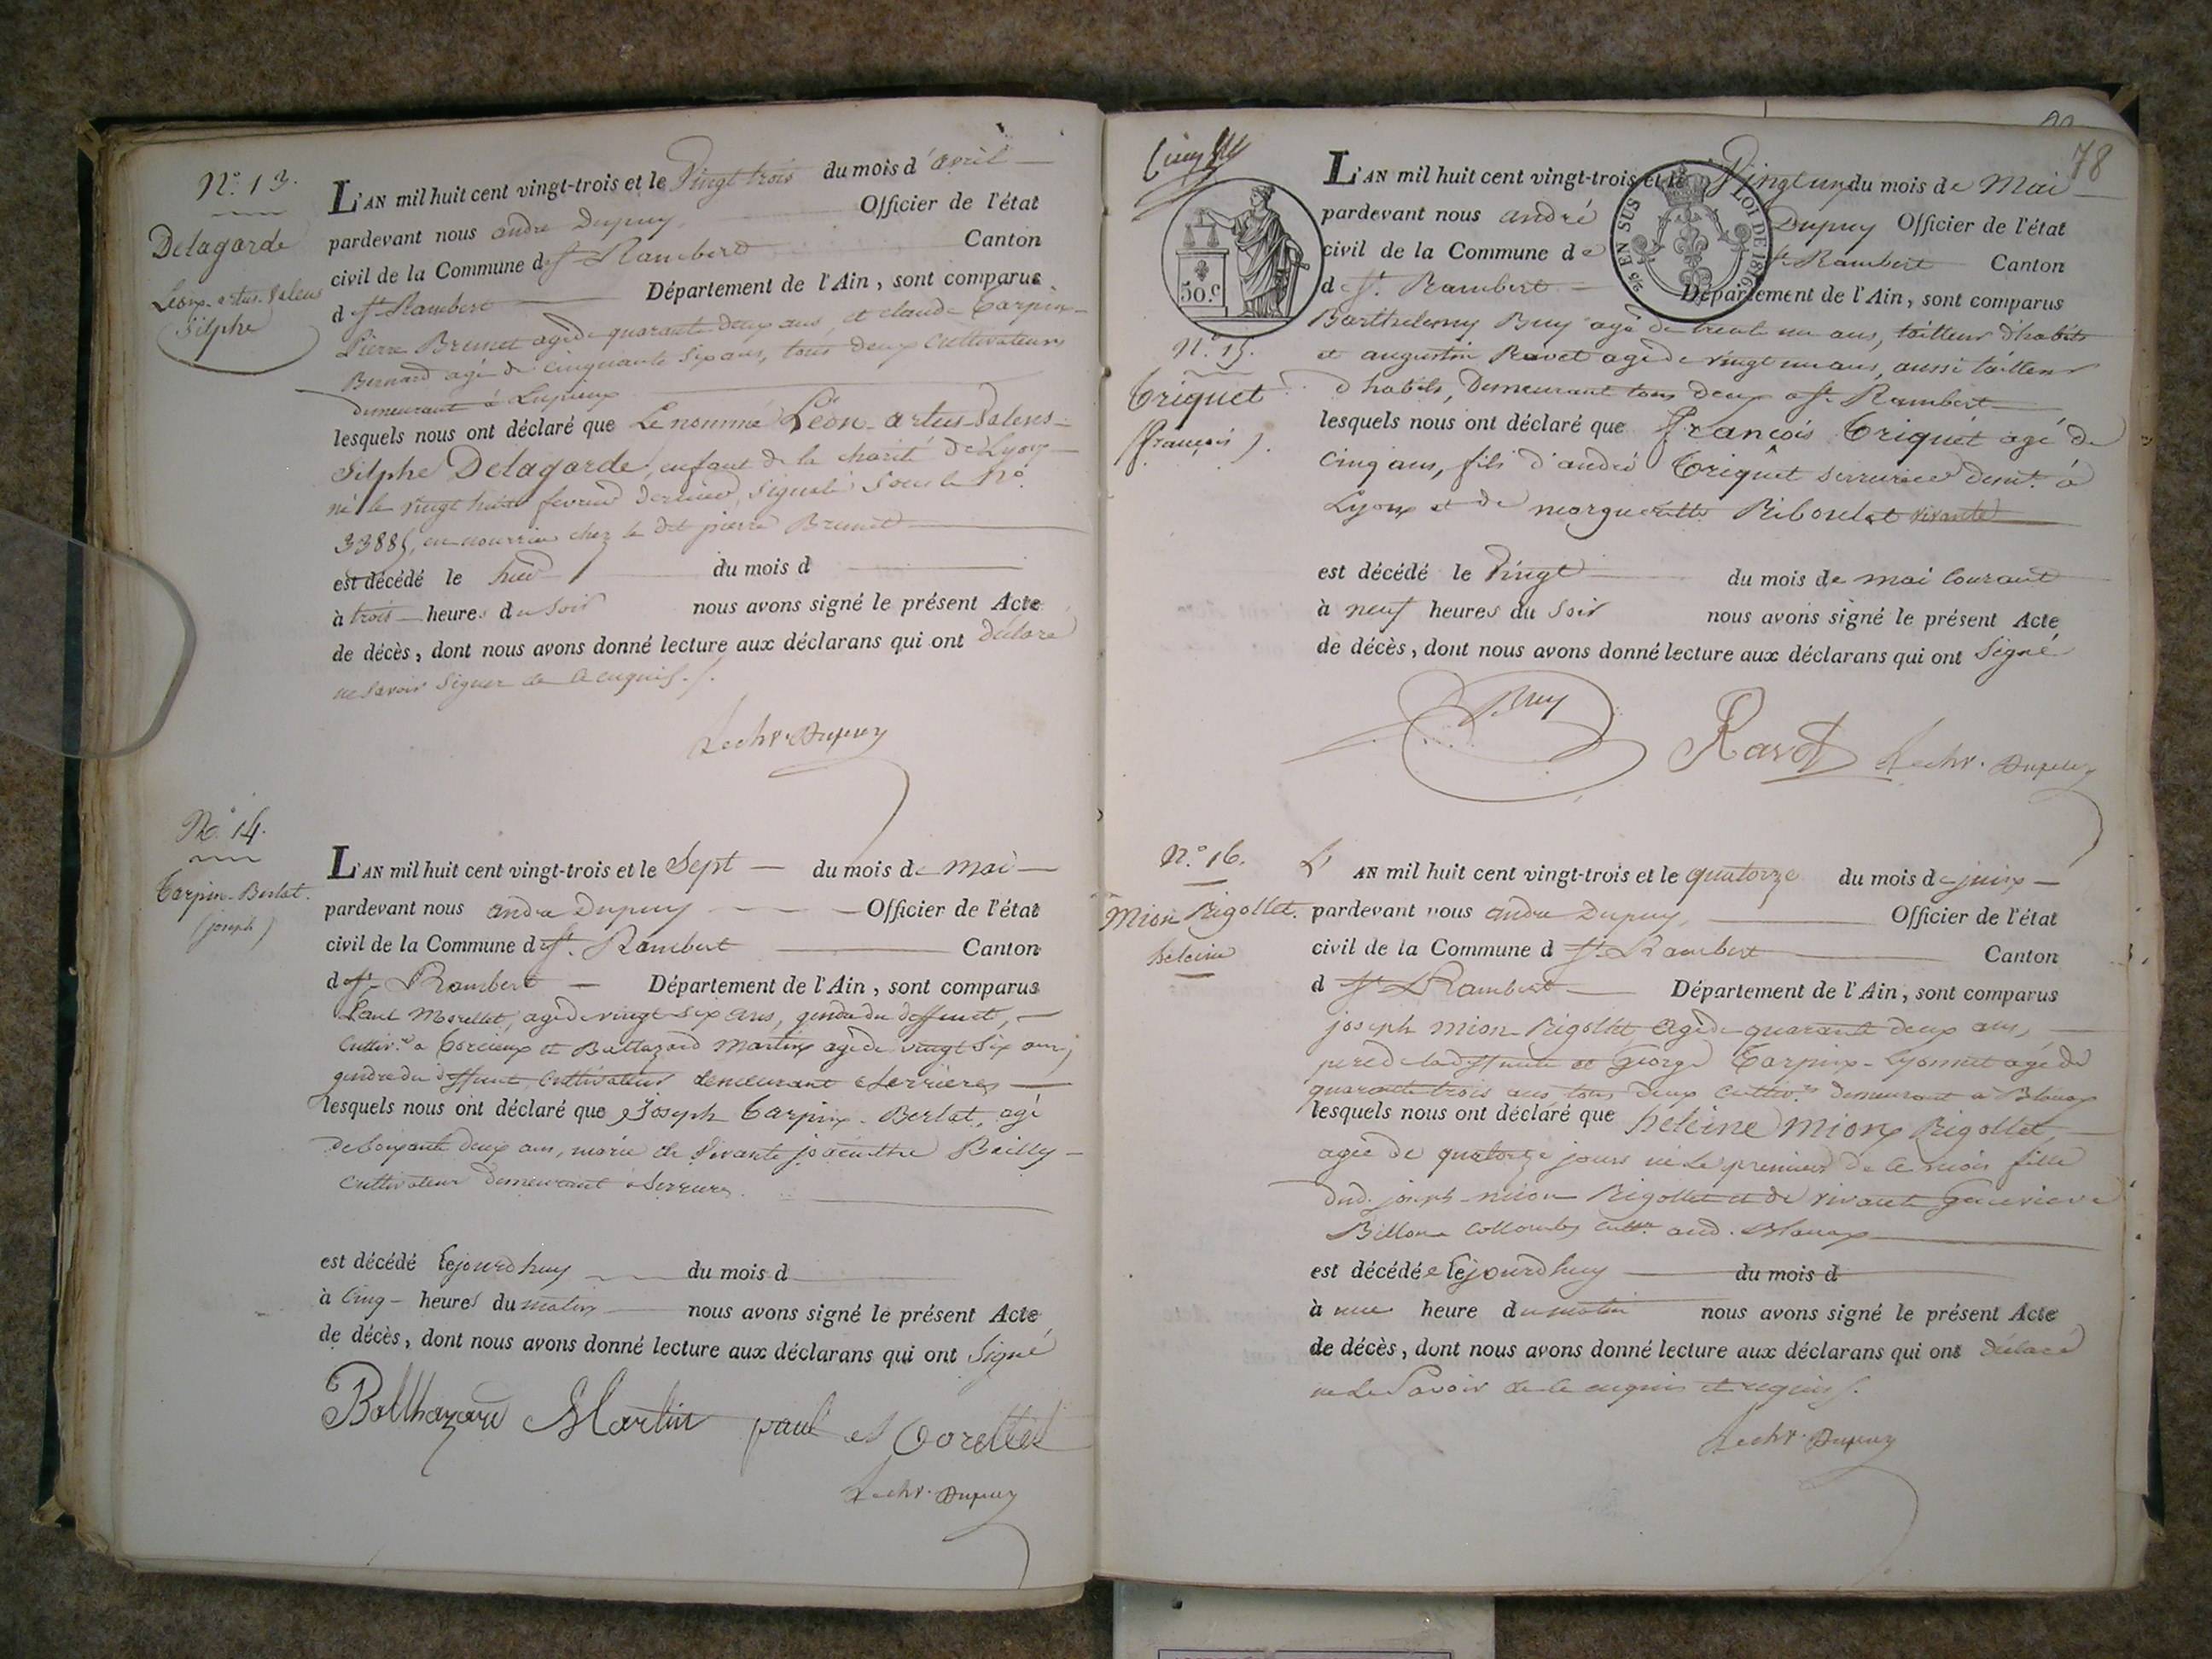 N.° 13.
Delagarde
Léon-artus-Valens
Silphe
L'AN mil huit cent vingt-trois et le Vingt trois du mois d'avril
pardevant nous andré Dupuy Officier de l'état
civil de la Commune de St. Rambert Canton
d St. Rambert Département de l'Ain, sont comparus
Pierre Brunet agé de quarante deux ans, et claude Carpin-
Bernard agé de cinquante six ans, tous deux cultivateurs
demeurant à Lupieux
lesquels nous ont déclaré que Le nommé Léon-artus-Valens-
Silphe Delagarde, enfant de la charité de Lyon
né le vingt huit fevrier dernier, signalé sous le N.°
33885, en nourrice chez le dit pierre Brunet
est décédé le hier du mois d
à trois heures du soir nous avons signé le présent Acte
de décès, dont nous avons donné lecture aux déclarans qui ont déclaré
ne savoir signer de ce enquis./.
Lechr. Dupuy
N.° 14.
Carpin-Berlat.
(joseph)
L'AN mil huit cent vingt-trois et le Sept du mois de mai
pardevant nous andré Dupuy Officier de l'état
civil de la Commune d St. Rambert Canton
d St. Rambert Département de l'Ain, sont comparus
Paul Morellet, agé de vingt six ans, gendre du deffunt,
cultiv.r a Corcieux et Baltazard Martin agé de vingt six ans,
gendre du deffunt, cultivateur demeurant a Serrieres
lesquels nous ont déclaré que Joseph Carpin-Berlat, agé
de soixante deux ans, marié de vivante jacinthe Bailly
cultivateur demeurant a Serrieres.
est décédé cejourdhuy du mois d
à Cinq heures du matin nous avons signé le présent Acte
de décès, dont nous avons donné lecture aux déclarans qui ont Signé
Balthazard Martin paul Morellet
Lechr. Dupuy
78
50.c
5/15 EN SUS LOI DE 1816
N.° 15.
Criquet
(françois).
L'AN mil huit cent vingt-trois et le Vingt un du mois de Mai
pardevant nous andré Dupuy Officier de l'état
civil de la Commune de St. Rambert Canton
d St. Rambert Département de l'Ain, sont comparus
Barthelemy Buy agé de trente un ans, tailleur d'habits
et augustin Ravet agé de vingt un ans, aussi tailleur
d'habits, Demeurant tous deux a St. Rambert
lesquels nous ont déclaré que françois Criquet agé de
Cinq ans, fils d'andré Criquet serrurier demt. à
Lyon et de margueritte Riboulet vivants
est décédé le Vingt du mois de mai courant
à neuf heures du Soir nous avons signé le présent Acte
de décès, dont nous avons donné lecture aux déclarans qui ont Signé
B. Buy Ravet Lechr. Dupuy
N.° 16.
Mion Rigollet.
héleine
L'AN mil huit cent vingt-trois et le quatorze du mois de juin
pardevant nous andré Dupuy, Officier de l'état
civil de la Commune d St. Rambert Canton
d St. Rambert Département de l'Ain, sont comparus
joseph mion-Rigollet agé de quarante deux ans,
pere de la deffunte et George Carpin-Lyonnet agé de
quarante trois ans, tous deux cultiv.rs demeurant a Blanaz
lesquels nous ont déclaré que héleine mion Rigollet,
agée de quatorze jours née Le premier de ce mois fille
dud. joseph mion Rigollet et de vivante Genevieve
Billon Collombs cultr. aud. Blanaz
est décédée cejourdhuy du mois d
à une heure du matin nous avons signé le présent Acte
de décès, dont nous avons donné lecture aux déclarans qui ont déclaré
ne Le Savoir de ce enquis et requis./.
Lechr. Dupuy